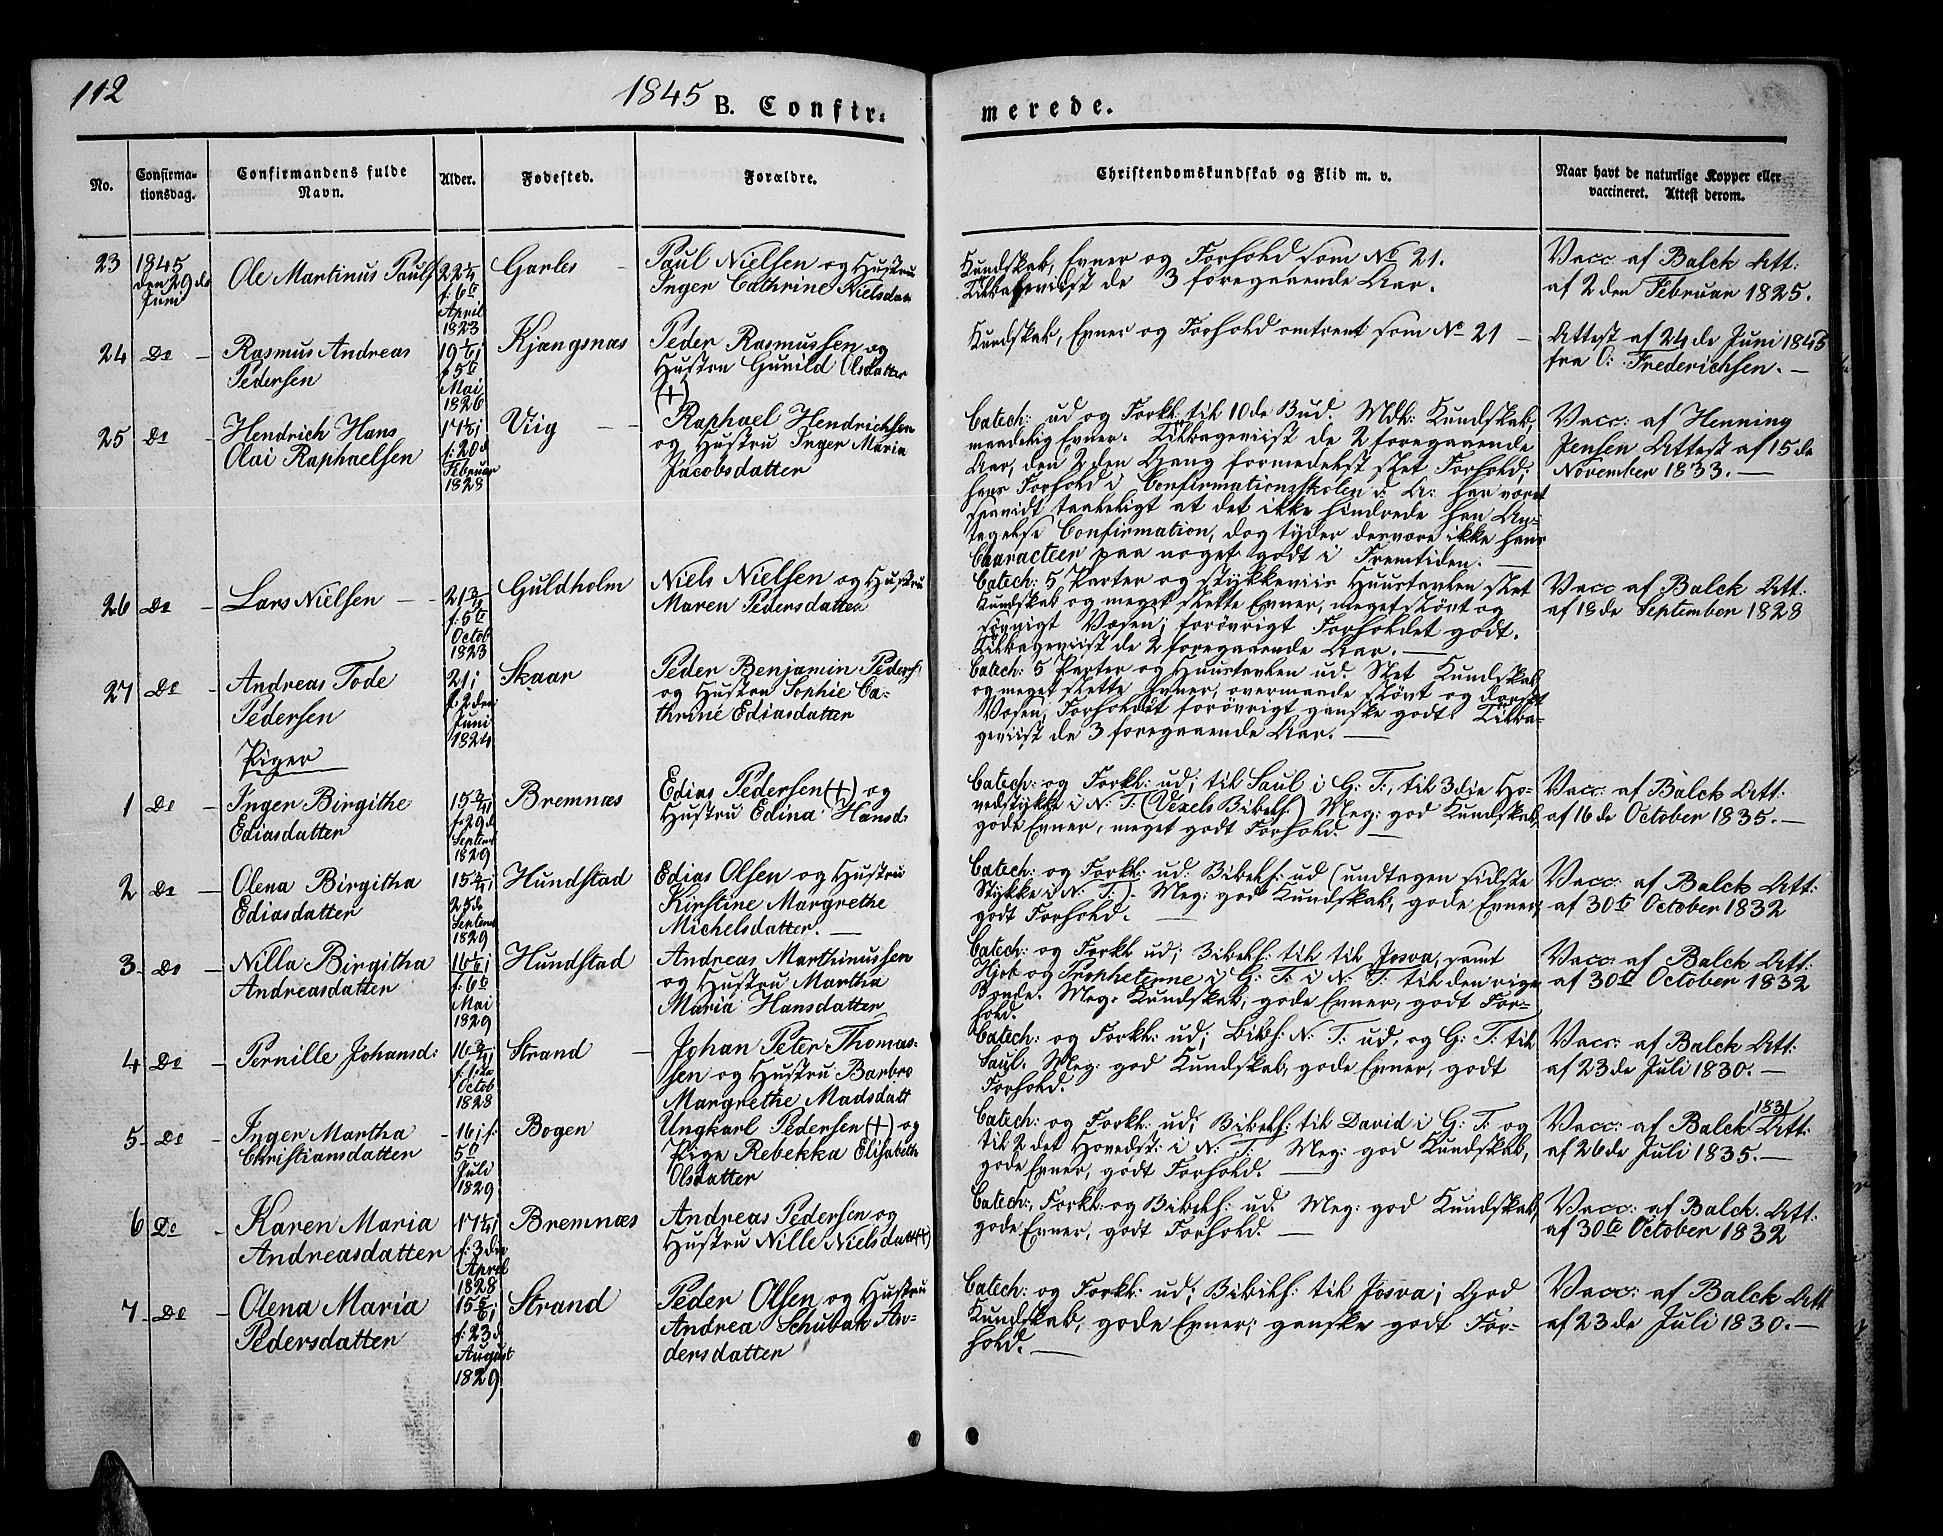 112
1845 B. Confir-
merede.
No.
Confirma-
tionsdag.
Confirmandens fulde
Navn.
Alder.
Fødested.
Forældre.
Christendomskundskab og Flid m. v.
Naar havt de naturlige Kopper eller
vaccineret. Attest derom.
23
1845
den 29de
Juni
Ole Martinus Pauls:
22¼
f: 6te
April
1823
Garles
Paul Nielsen og Hustru
Inger Cathrine Nielsdatt
Kundskab, Evner og Forhold som No 21.
Tilbageviist de 3 foregaaende Aar.
Vacc af Balck Att:
af 2den Februar 1825.
24
Do
Rasmus Andreas
Pedersen
19 1/6;
f 5te
Mai
1826
Kjangsnæs
Peder Rasmussen og
Hustru Gunild Olsdatter
(+)
Kundskab, Evner og Forhold omtrent som No 21
Attest af 24de Juni 1845
fra O: Frederichsen.
25
Do
Hendrich Hans
Olai Raphaelsen
f: 20de
Februar
1828
Viig
Raphael Hendrichsen
og Hustru Inger Maria
Jacobsdatter
Catech: ud og Forkl: til 10de Bud. Mdl: Kundskab,
maadelig Evner. Tilbageviist de 2 foregaaende
Aar, den 2den Gang formedelst slet Forhold;
hans Forhold i Confirmationsskolen d: A: har været
saavidt taaleligt at det ikke hindrede han An-
tagelse Confirmation, dog tyder desværre ikke hans
Characteer paa noget godt i Fremtiden.
Vacc: af Henning
Jensen Attest af 15de
November 1833.
26
Do
Lars Nielsen
21¾
f: 5te
Octob
1823
Guldholm
Niels Nielsen og Hustru
Maren Pedersdatter
Catech: 5 Parter og stykkeviis Huustavlen slet
Kundskab og meget slette Evner, meget sløvt og
søvnigt Væsen; forøvrigt Forholdet godt.
Tilbageviist de 2 foregaaende Aar.
Vacc af Balck Att:
af 18de September 1828
27
Do
Andreas Tode
Pedersen
21;
f: 2den
Juni
1824
Skaar
Peder Benjamin Peders:
og Hustru Sophie Ca-
thrine Ediasdatter
Catech: 5 Parter og Huustavlen ud. Slet Kundskab
og meget slette Evner, overmaade sløvt og dorskt
Væsen; Forholdet forøvrigt ganske godt. Tilba-
geviist de 3 foregaaende Aar.
Piger
1
Do
Inger Birgithe
Ediasdatter
15¾;
f: 29de
Septemb
1829
Bremnæs
Edias Pedersen (+) og
Hustru Edina Hansd:
Catech: og Forkl: ud; til Saul i G: T:, til 3die Ho-
vedstykke i N: T: (Vexels Bibelh:) Meg: god Kundskab,
gode Evner, meget godt Forhold.
Vacc: af Balck Att:
af 16de October 1835.
2
Do
Olena Birgitha
Ediasdatter
15¾;
25de
Septemb
1829
Hundstad
Edias Olsen og Hustru
Kirstine Margrethe
Michelsdatter.
Catech: og Forkl: ud: Bibelh: ud (undtagen sidste
Stykke i N: T:). Meg: god Kundskab, gode Evner,
godt Forhold.
Vacc: af Balck Att:
af 30te October 1832
3
Do
Nilla Birgitha
Andreasdatter
16 1/6;
f: 6te
Mai
1829
Hundstad
Andreas Marthinussen
og Hustru Martha
Maria Hansdatter
Catech: og Forkl ud; Bibelh: til til Josva, samt
Hjob og Propheterne i G: T: i N: T: til den rige
Bonde. Meg: Kundskab; gode Evner, godt For-
hold.
Vacc: af Balck Att:
af 30te October 1832
4
Do
Pernille Johansd:
16¾;
f: 1ste
Octob
1828
Strand
Johan Peter Thomas-
sen og Hustru Barbro
Margrethe Madsdatt
Catech: og Forkl: ud; Bibh: N: T: ud, og G: T: til
Saul. Meg: god Kundskab, gode Evner, godt
Forhold.
Vacc: af Balck Att:
af 23de Juli 1830.
5
Do
Inger Martha
Christiansdatter
16; f:
5te
Juli
1829
Bogen
Ungkarl Pedersen (+) og
Pige Rebekka Elisabeth
Olsdatter
Catech: og Forkl: ud; Bibelh: til David i G: T: og
til 2det Hovedst: i N: T: Meg: god Kundskab,
gode Evner, godt Forhold.
1831
Vacc: af Balck Att:
af 26de Juli 1835.
6
Do
Karen Maria
Andreasdatter
17¼;
f: 3die
April
1828
Bremnæs
Andreas Pedersen og
Hustru Nille Nielsdatt(+)
Catech:, Forkl: og Bibelh: ud. Meg: god Kundskab,
gode Evner, godt Forhold.
Vacc: af Balck. Att:
af 30te October 1832
7
Do
Olena Maria
Pedersdatter
15 5/6;
f: 23de
August
1829
Strand
Peder Olsen og Hustru
Andrea Schubak An-
dersdatter
Catech: og Forkl: ud; Bibelh: til Josva; God
Kundskab, gode Evner; ganske godt For-
hold.
Vacc: af Balck Att
af 23de Juli 1830.